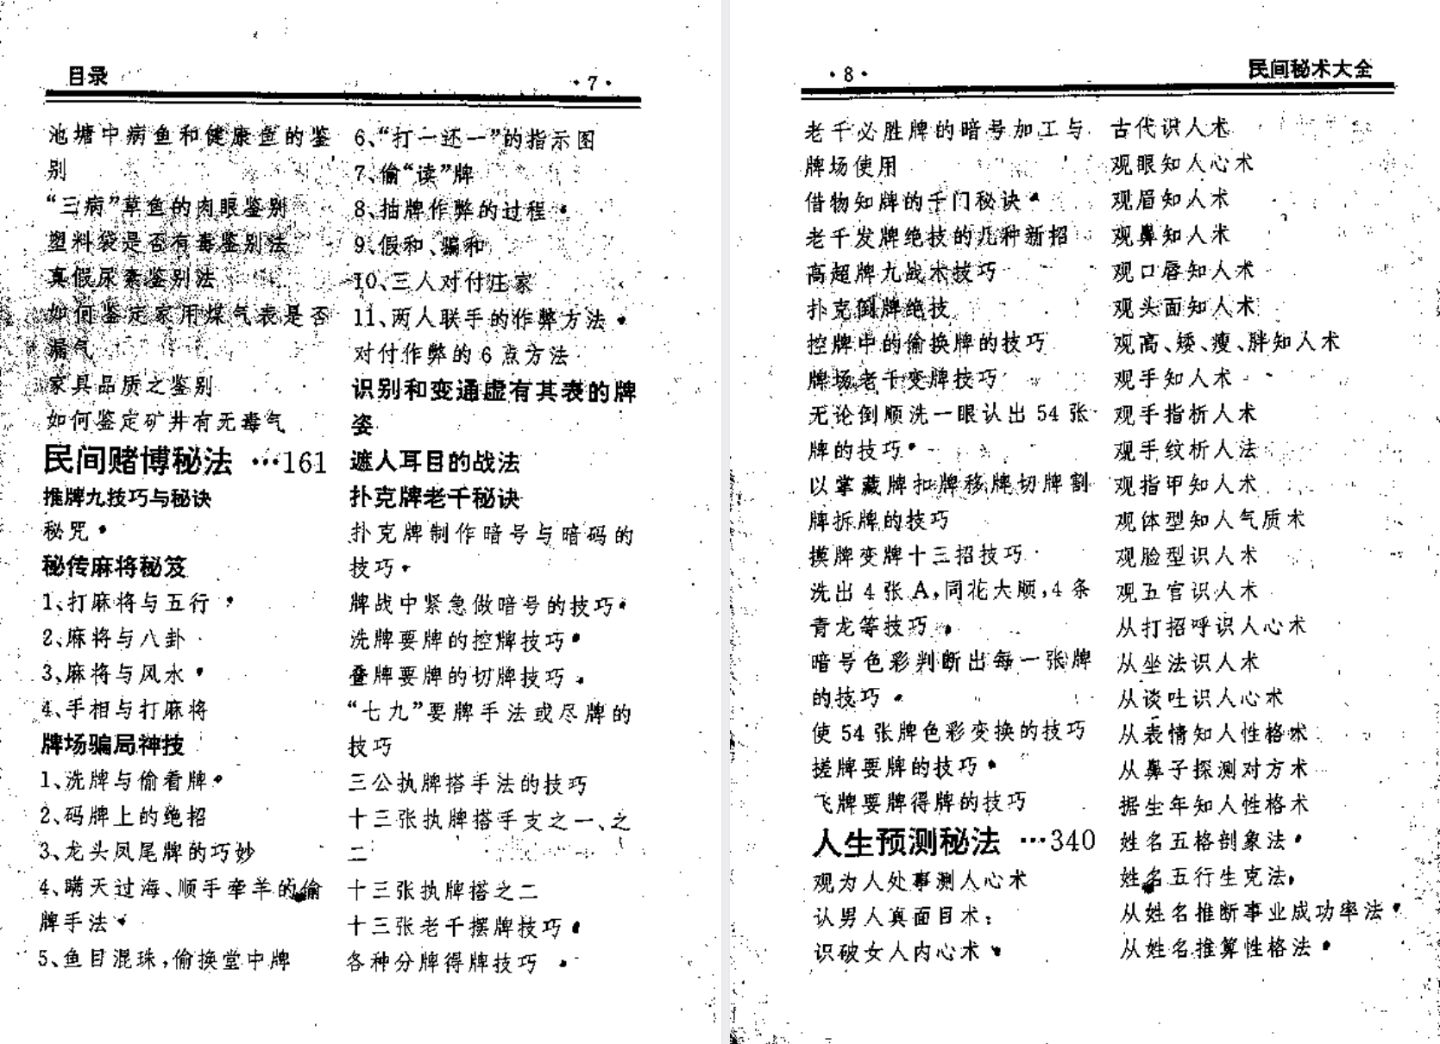 目录
·7·
池塘中病鱼和健康鱼的鉴
别
“三病”草鱼的肉眼鉴别
塑料袋是否有毒鉴别法
真假尿素鉴别法
如何鉴定家用煤气表是否
漏气
家具品质之鉴别
如何鉴定矿井有无毒气
民间赌博秘法…161
推牌九技巧与秘诀
秘咒
秘传麻将秘笈
1、打麻将与五行
2、麻将与八卦
3、麻将与风水
4、手相与打麻将
牌场骗局神技
1、洗牌与偷看牌
2、码牌上的绝招
3、龙头凤尾牌的巧妙
4、瞒天过海、顺手牵羊的偷
牌手法
5、鱼目混珠,偷换堂中牌
6、“打一还一”的指示图
7、偷“读”牌
8、抽牌作弊的过程
9、假和、骗和
10、三人对付庄家
11、两人联手的作弊方法
对付作弊的6点方法
识别和变通虚有其表的牌
姿
遮人耳目的战法
扑克牌老千秘诀
扑克牌制作暗号与暗码的
技巧
牌战中紧急做暗号的技巧
洗牌要牌的控牌技巧
叠牌要牌的切牌技巧
“七九”要牌手法或尽牌的
技巧
三公执牌搭手法的技巧
十三张执牌搭手支之一、之
二
十三张执牌搭之二
十三张老千摆牌技巧
各种分牌得牌技巧
·8·
民间秘术大全
老千必胜牌的暗号加工与
牌场使用
借物知牌的千门秘诀
老千发牌绝技的几种新招
高超牌九战术技巧
扑克倒牌绝技
控牌中的偷换牌的技巧
牌场老千变牌技巧
无论倒顺洗一眼认出54张
牌的技巧
以掌藏牌扣牌移牌切牌割
牌拆牌的技巧
摸牌变牌十三招技巧
洗出4张A,同花大顺,4条
青龙等技巧
暗号色彩判断出每一张牌
的技巧
使54张牌色彩变换的技巧
搓牌要牌的技巧
飞牌要牌得牌的技巧
人生预测秘法…340
观为人处事测人心术
认男人真面目术
识破女人内心术
古代识人术
观眼知人心术
观眉知人术
观鼻知人术
观口唇知人术
观头面知人术
观高、矮、瘦、胖知人术
观手知人术
观手指析人术
观手纹析人法
观指甲知人术
观体型知人气质术
观脸型识人术
观五官识人术
从打招呼识人心术
从坐法识人术
从谈吐识人心术
从表情知人性格术
从鼻子探测对方术
据生年知人性格术
姓名五格剖象法
姓名五行生克法
从姓名推断事业成功率法
从姓名推算性格法